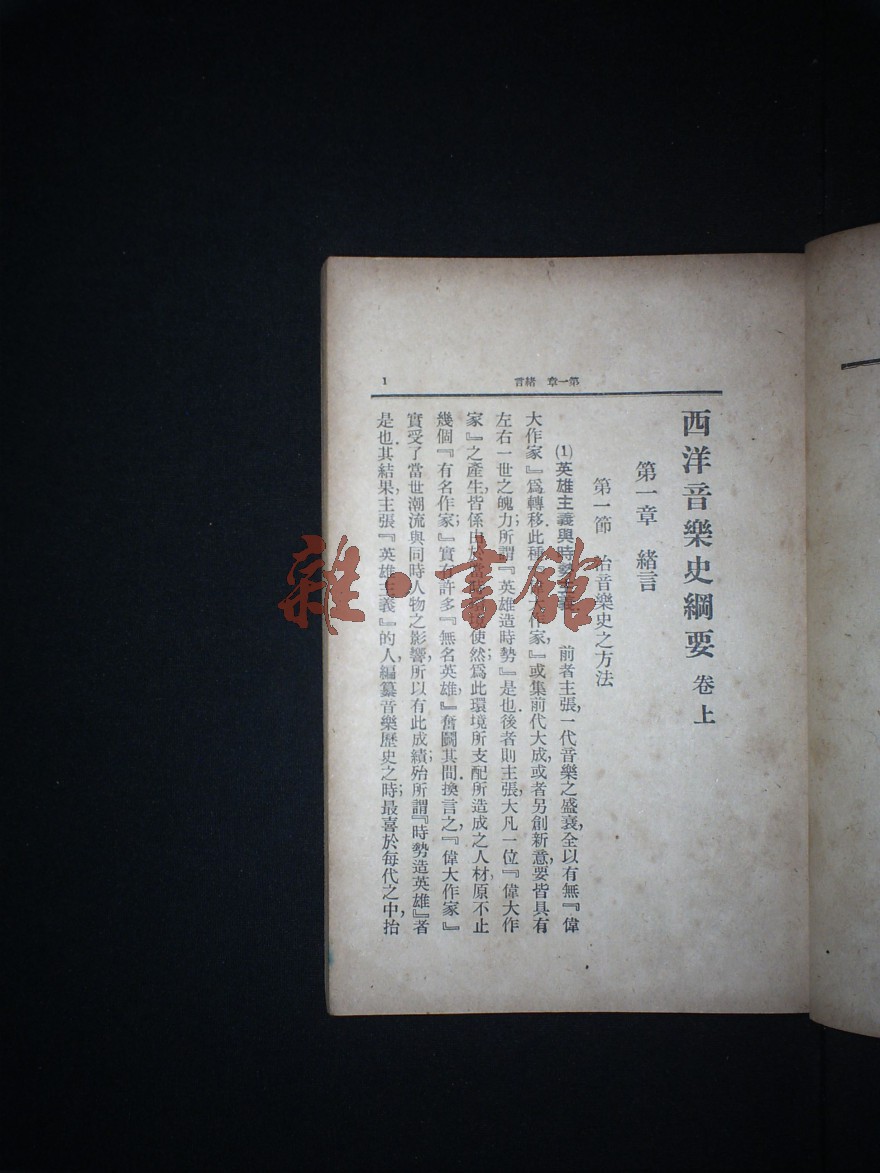 西洋音樂史綱要 卷上
第一章 緒言
第一節 治音樂史之方法
(1)英雄主義與時勢主義 前者主張,一代音樂之盛衰,全以有無『偉
大作家』爲轉移此種『偉大作家,』或集前代大成,或者另創新意,要皆具有
左右一世之魄力;所謂『英雄造時勢』是也.後者則主張大凡一位『偉大作
家』之產生,皆係由於 使然;爲此環境所支配所造成之人材,原不止
幾個『有名作家;』實有許多『無名英雄,』奮鬭其間.換言之,『偉大作家』
實受了當世潮流與同時人物之影響,所以有此成績;殆所謂『時勢造英雄』者
是也.其結果,主張『英雄主義』的人,編纂音樂歷史之時;最喜於每代之中,抬
第一章 緒言
1
雜·書館